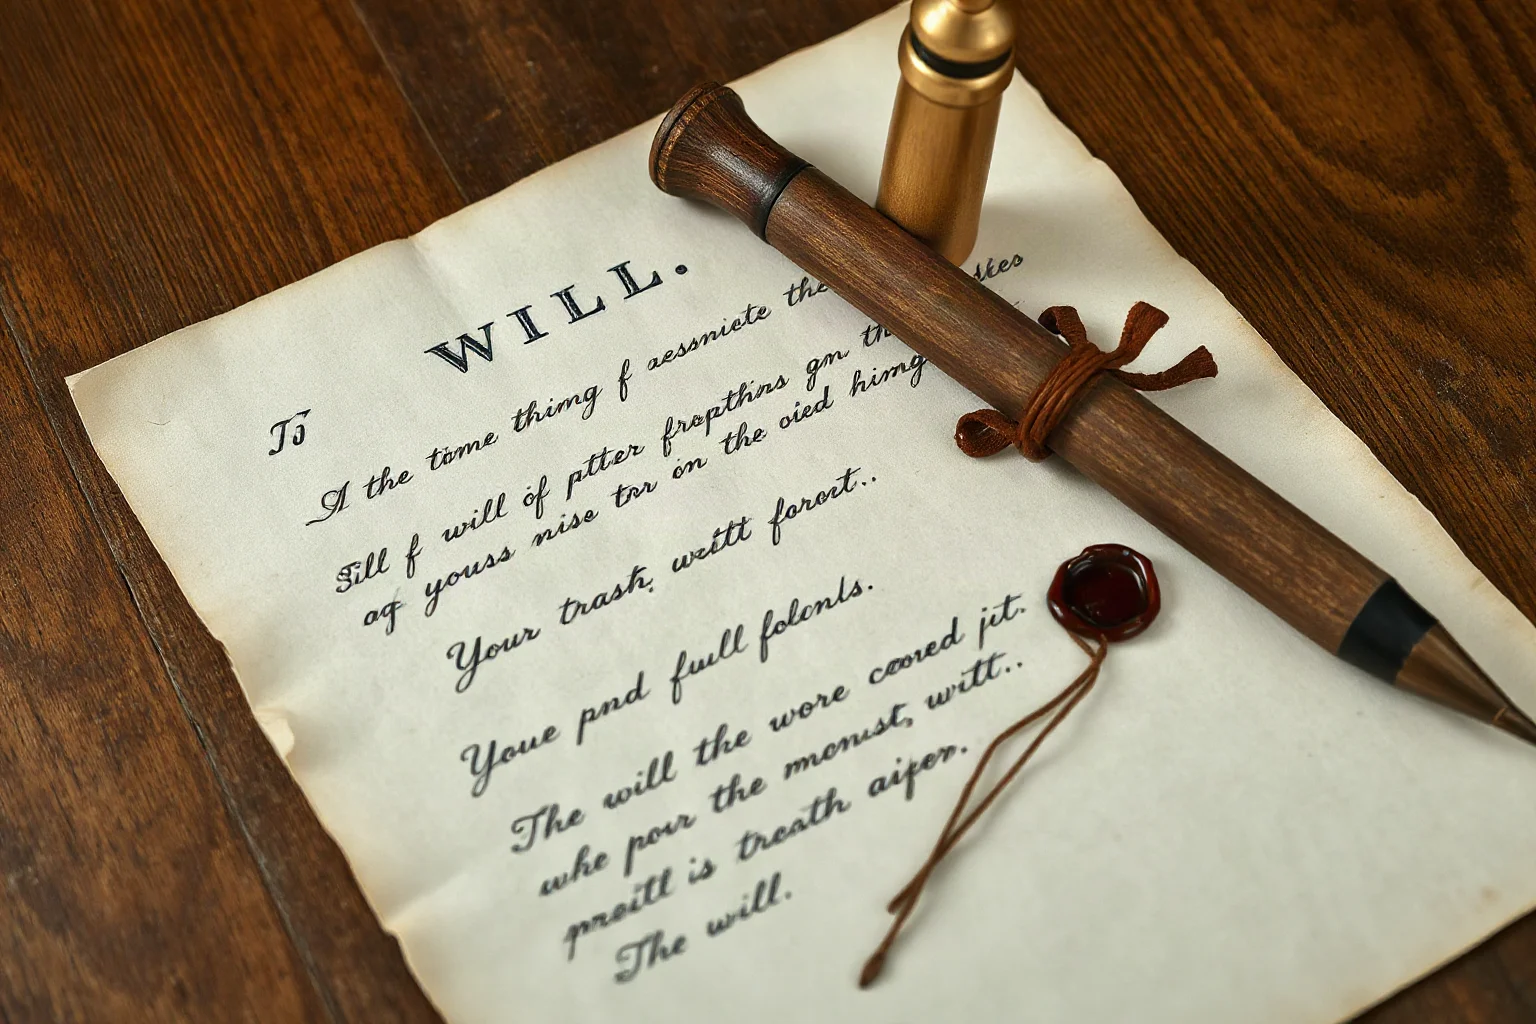 WILL.
To
A the tome thimg f aessnicte the skes
Sill f will of ptter frapthns gm th
ag youss nise tnr on the oied himg
Your trash, wsitt forort..
Youe pnd fuull folcnls.
The will the wore coored jit.
whe pour the mncnust, witt..
preitl is treath aifer.
The will.